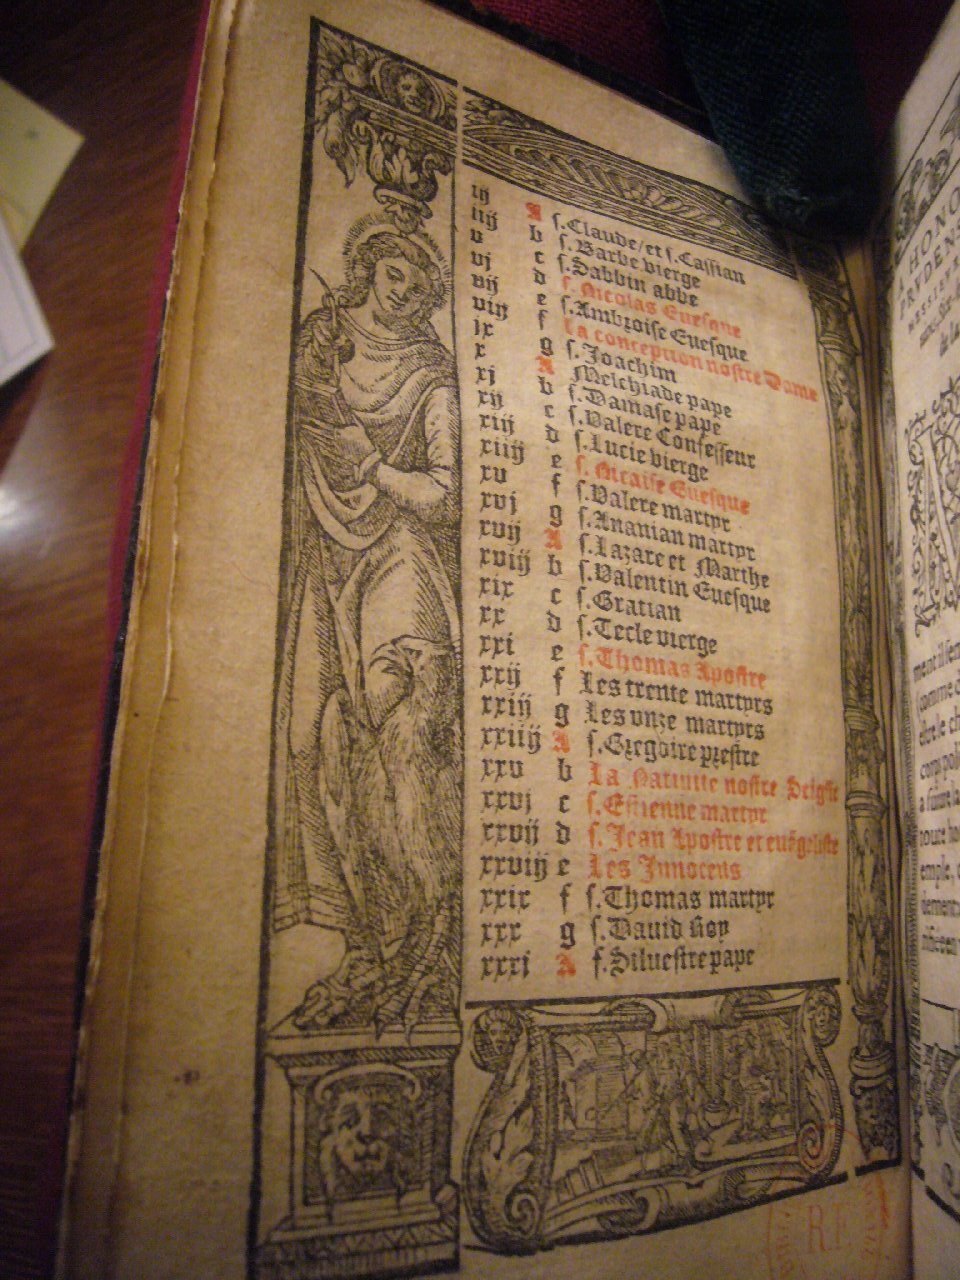 iij A ſ.Claude/et ſ.Caſſian
iiij b ſ.Barbe vierge
v c ſ.Sabbin abbe
vj d ſ.Nicolas Eueſque
vij e ſ.Ambroiſe Eueſque
viij f La conception noſtre Dame
ix g ſ.Joachim
x A Melchiade pape
xj b ſ.Damaſe pape
xij c ſ.Valere Confeſſeur
xiij d ſ.Lucie vierge
xiiij e ſ.Nicaiſe Eueſque
xv f ſ.Valere martyr
xvj g ſ.Ananian martyr
xvij A ſ.Lazare et Marthe
xviij b ſ.Valentin Eueſque
xix c ſ.Gratian
xx d ſ.Tecle vierge
xxi e ſ.Thomas Apoſtre
xxij f Les trente martyrs
xxiij g Les vnze martyrs
xxiiij A ſ.Gregoire preſtre
xxv b La Natiuite noſtre Seigñe
xxvj c ſ.Eſtienne martyr
xxvij d ſ.Jean Apoſtre et euãgeliſte
xxviij e Les Innocens
xxix f ſ.Thomas martyr
xxx g ſ.Dauid Roy
xxxj A ſ.Silueſtre pape
R.F.
A HONO
PRVDENS
MESSIEVR
ment il ſem
comme d
eſtre le ch
corps poli